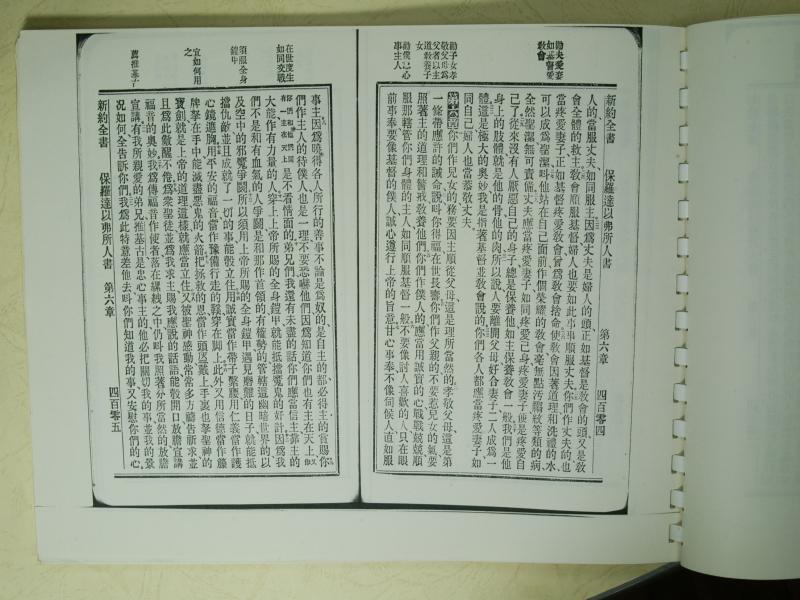 勸夫愛妻
如基督愛
教會
勸子女孝
敬父母爲
父者以主
道教養子
女
勸僕忠心
事主人
新約全書 保羅達以弗所人書 第六章 四百零四
人的當服丈夫、如同服主、因爲丈夫是婦人的頭、正如基督是教會的頭、又是教
會全體的救主、教會順服基督、婦人也要如此事事順服丈夫、你們作丈夫的、也
當疼愛妻子、正如基督疼愛教會、曾爲教會捨命、使教會因著道理和洗禮的水、
可以成爲聖潔、叫他站在自己面前、作個榮耀的教會、毫無點汚縐紋等類的病、
全然聖潔無可責備、丈夫應當疼愛妻子、如同疼愛己身、疼愛妻子便是疼愛自
己了、從來沒有人厭惡自己的身子、總是保養他、如主保養教會一般、我們是他
身上的肢體、就是他的骨他的肉、所以說人要離開父母、好合妻子、二人成爲一
體、這是極大的奧妙、我是指著基督並教會說的、你們各人都應當疼愛妻子、如
同自己、婦人也當敬丈夫、
第六章 你們作兒女的、務要因主順從父母、這是理所當然的、孝敬父母、這是第
一條帶應許的誡命、說、叫你得福、在世長壽、你們作父親的、不要惹兒女的氣、要
照著主的道理和警戒、教養他們、你們作僕人的、應當用誠實的心、戰戰兢兢、順
服那轄管你們身體的主人、如同順服基督一般、不要像討人喜歡的人、只在眼
前事奉、要像基督的僕人、誠心遵行上帝的旨意、甘心事奉、不像伺候人、直如服
在世度生
如同交戰
須服全身
鎧甲
宜如何用
之
薦推基古
事主、因爲曉得各人所行的善事、不論是爲奴的、是自主的、都必得主的賞賜、你
們作主人的待僕人、也是一理、不要恐嚇他們、因爲知道你們也有主在天上、
是不看情面的、弟兄們、我還有未盡的話、你們應當信主、靠主的
大能、作有力量的人、穿上上帝所賜的全身鎧甲、就能抵擋魔鬼的奸計、因爲我
們不是和有血氣的人爭鬭、是和那作首領的、有權勢的、管轄這幽暗世界的、以
及空中的邪魔爭鬭、所以須用上帝所賜的全身鎧甲、遇見磨難的日子、就能抵
擋仇敵、並且成就了一切的事、能彀立住、用誠實當作帶子繫腰、用仁義當作護
心鏡遮胸、用平安的福音、當作豫備行走的鞋、穿在脚上、此外又用信德當作籐
牌、拏在手中、能滅盡惡鬼的火箭、把拯救的恩、當作頭盔戴上、手裏也拏聖神的
寶劍、就是上帝的道理、這樣就應當立住、又被聖神感動、常常多方禱告祈求、並
且爲此儆醒不倦、爲衆聖徒、並爲我求主、賜我應說的話語、能彀開口放膽、宣講
福音的奧妙、我爲傳福音作使者、落在縲絏之中、仍叫我照著分所當然的放膽
宣講、有我所親愛的弟兄推基古、是忠心事主的、他必把關切我的事、並我的景
況如何、全告訴你們、我爲此特意差他去、叫你們知道我的事、又安慰你們的心、
新約全書 保羅達以弗所人書 第六章 四百零五